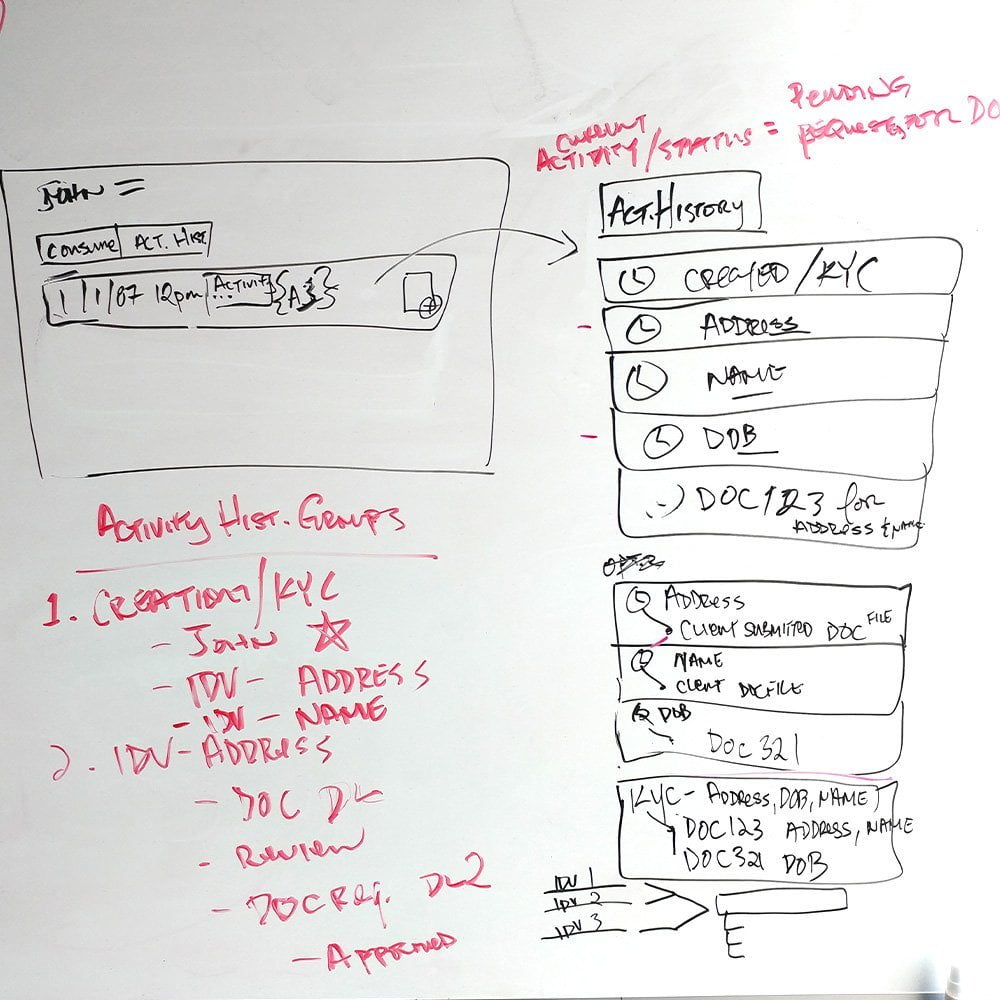 CURRENT
ACTIVITY/STATUS = PENDING
REQUEST FOR DO
JOHN =
CONSUME ACT. HIST
1/1/07 12pm ACTIVITY ... { A }
ACT. HISTORY
CREATED/KYC
ADDRESS
NAME
DOB
DOC123 for
ADDRESS & NAME
ADDRESS
CLIENT SUBMITTED DOC FILE
NAME
CLIENT DOCFILE
DOB
DOC 321
KYC - ADDRESS, DOB, NAME
DOC123 ADDRESS, NAME
DOC321 DOB
IDV 1
IDV 2
IDV 3
ACTIVITY HIST. GROUPS
1. CREATION/KYC
- JOHN
- IDV - ADDRESS
- IDV - NAME
2. IDV - ADDRESS
- DOC
- REVIEW
- DOC REQ.
- APPROVED